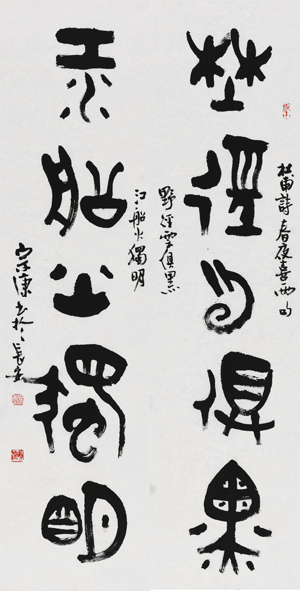 杜甫詩春夜喜雨句
埜徑云俱黑
野徑雲俱黑
江船火獨明
江船火獨明
书於長安